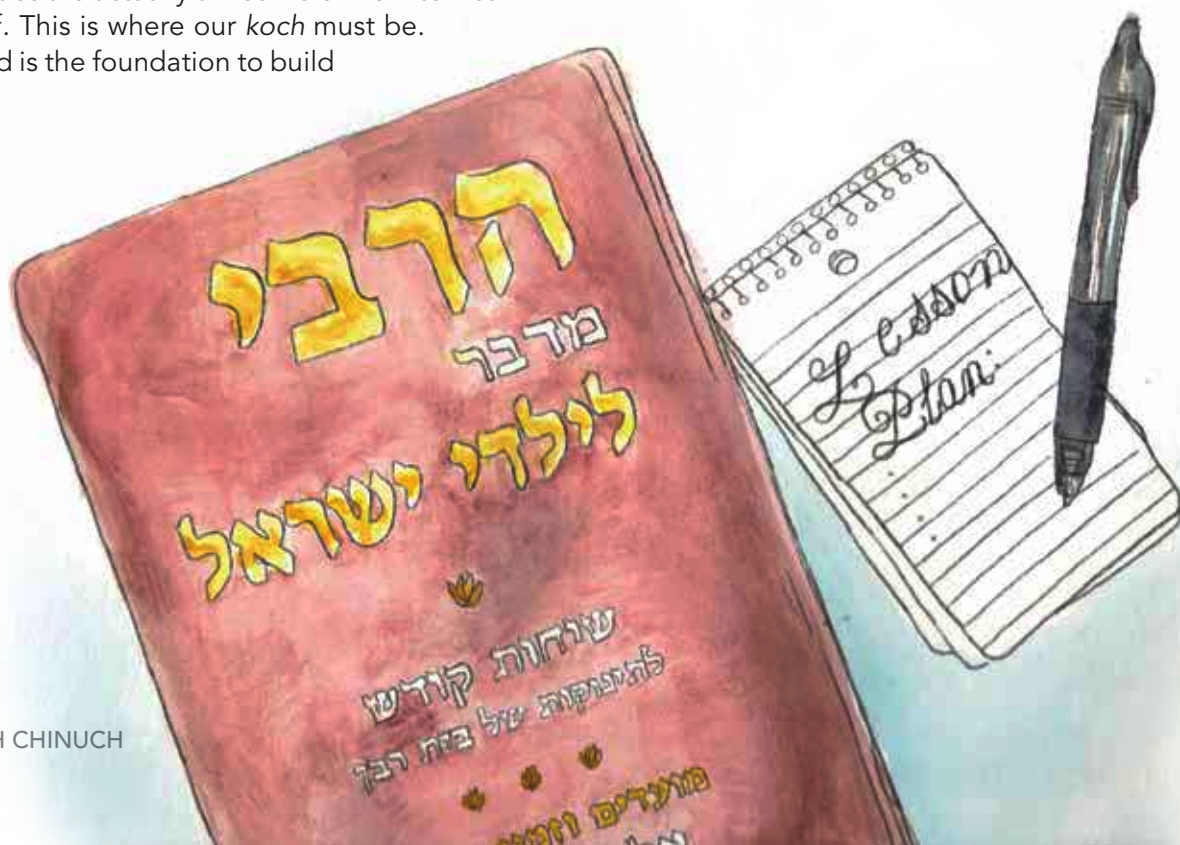 . This is where our koch must be.
d is the foundation to build
הרבי
מדבר
לילדי ישראל
שיחות קודש
לתינוקות של בית רבן
מועדים
Lesson
Plan:
CHINUCH